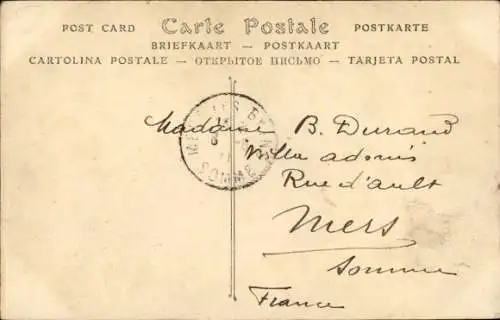 POST CARD Carte Postale POSTKARTE
BRIEFKAART — POSTKAART
CARTOLINA POSTALE — ОТКРЫТОЕ ПИСЬМО — TARJETA POSTAL
MERS LES BAINS
SOMME
Madame B. Durand
Villa adonis
Rue d'ault
Mers
Somme
France